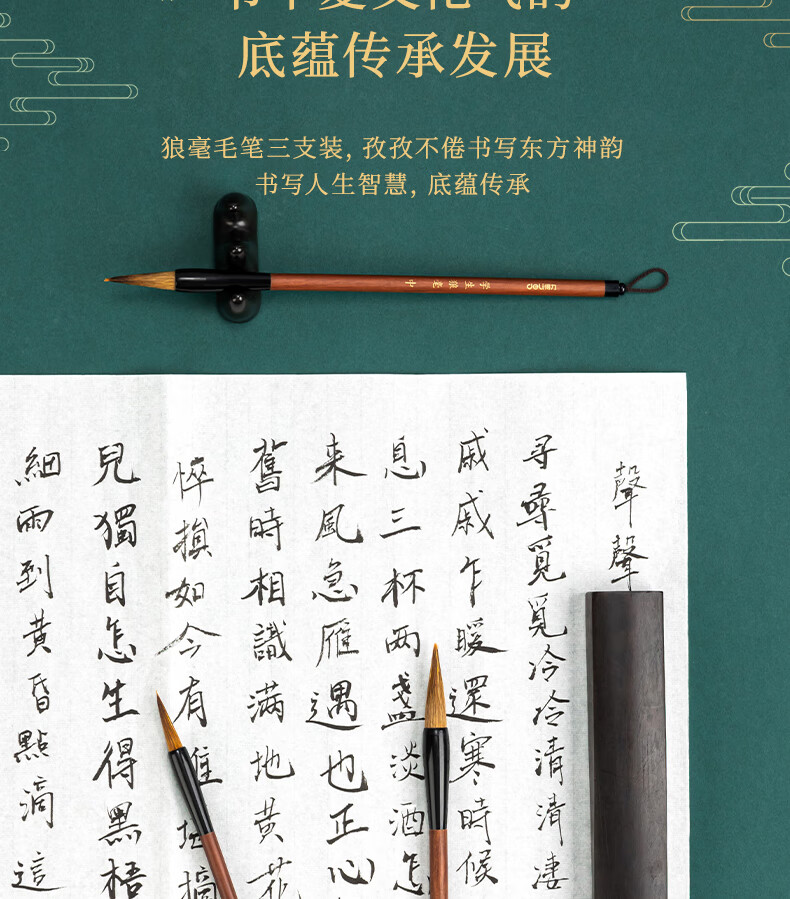 底蕴传承发展
狼毫毛笔三支装, 孜孜不倦书写东方神韵
书写人生智慧, 底蕴传承
学生狼毫 中
聲聲
尋尋覓覓冷冷清清凄
戚戚乍暖還寒時候
息三杯两盏淡酒怎
来風急雁過也正心
舊時相識滿地黄花
悴損如今有 摘
兒獨自怎生得黑梧
細雨到黄昏點滴這